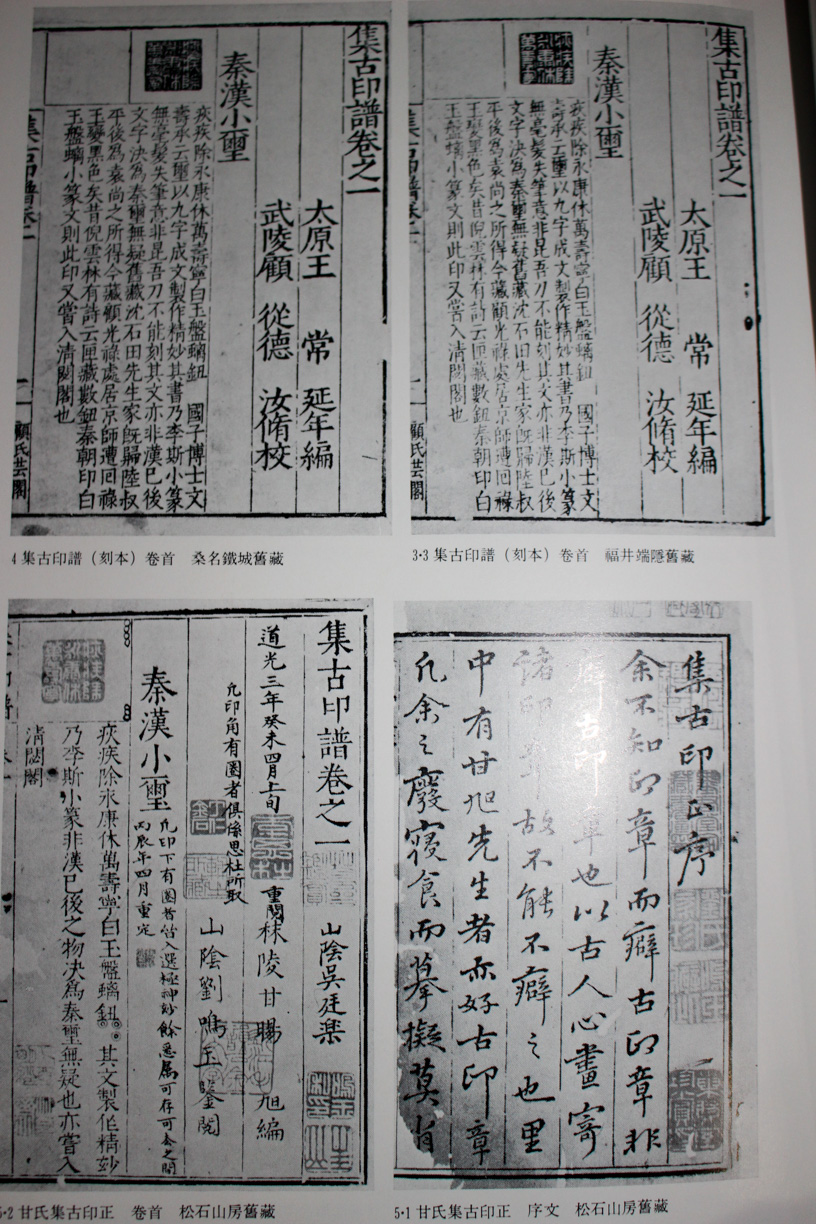 集古印譜卷之一
太原王　常　延年編
武陵顧　從德　汝脩校
秦漢小璽
疢疾除永康休萬壽寧白玉盤螭鈕　國子博士文
壽承云璽以九字成文製作精妙其書乃李斯小篆
無毫髮失筆意非昆吾刀不能刻其文亦非漢已後
文字決為秦璽無疑舊藏沈石田先生家旣歸陸叔
平後為袁尚之所得今藏顧光祿處居京師遭回祿
玉變黑色矣昔倪雲林有詩云匣藏數鈕秦朝印白
玉盤螭小篆文則此印又嘗入清閟閣也
顧氏芸閣
3·3 集古印譜（刻本）卷首　福井端隱舊藏
集古印譜卷之一
太原王　常　延年編
武陵顧　從德　汝脩校
秦漢小璽
疢疾除永康休萬壽寧白玉盤螭鈕　國子博士文
壽承云璽以九字成文製作精妙其書乃李斯小篆
無毫髮失筆意非昆吾刀不能刻其文亦非漢已後
文字決為秦璽無疑舊藏沈石田先生家旣歸陸叔
平後為袁尚之所得今藏顧光祿處居京師遭回祿
玉變黑色矣昔倪雲林有詩云匣藏數鈕秦朝印白
玉盤螭小篆文則此印又嘗入清閟閣也
集古印譜卷之一
顧氏芸閣
4 集古印譜（刻本）卷首　桑名鐵城舊藏
集古印正序
余不知印章而癖古印章非
癖古印章也以古人心畫寄
諸印章故不能不癖之也里
中有甘旭先生者亦好古印章
凡余之廢寢食而摹擬莫肖
5·1 甘氏集古印正　序文　松石山房舊藏
集古印譜卷之一
山陰吳廷
道光三年癸未四月上旬　重閱
秣陵甘暘　旭編
凡印角有圈者俱係思杜所取
山陰劉鳴玉鑒閱
秦漢小璽
凡印下有圈者皆入選極神妙餘悉屬可存可去之間
丙辰年四月重定
疢疾除永康休萬壽寧白玉盤螭鈕　其文製作精妙
乃李斯小篆非漢已後之物決為秦璽無疑也亦嘗入
清閟閣
5·2 甘氏集古印正　卷首　松石山房舊藏